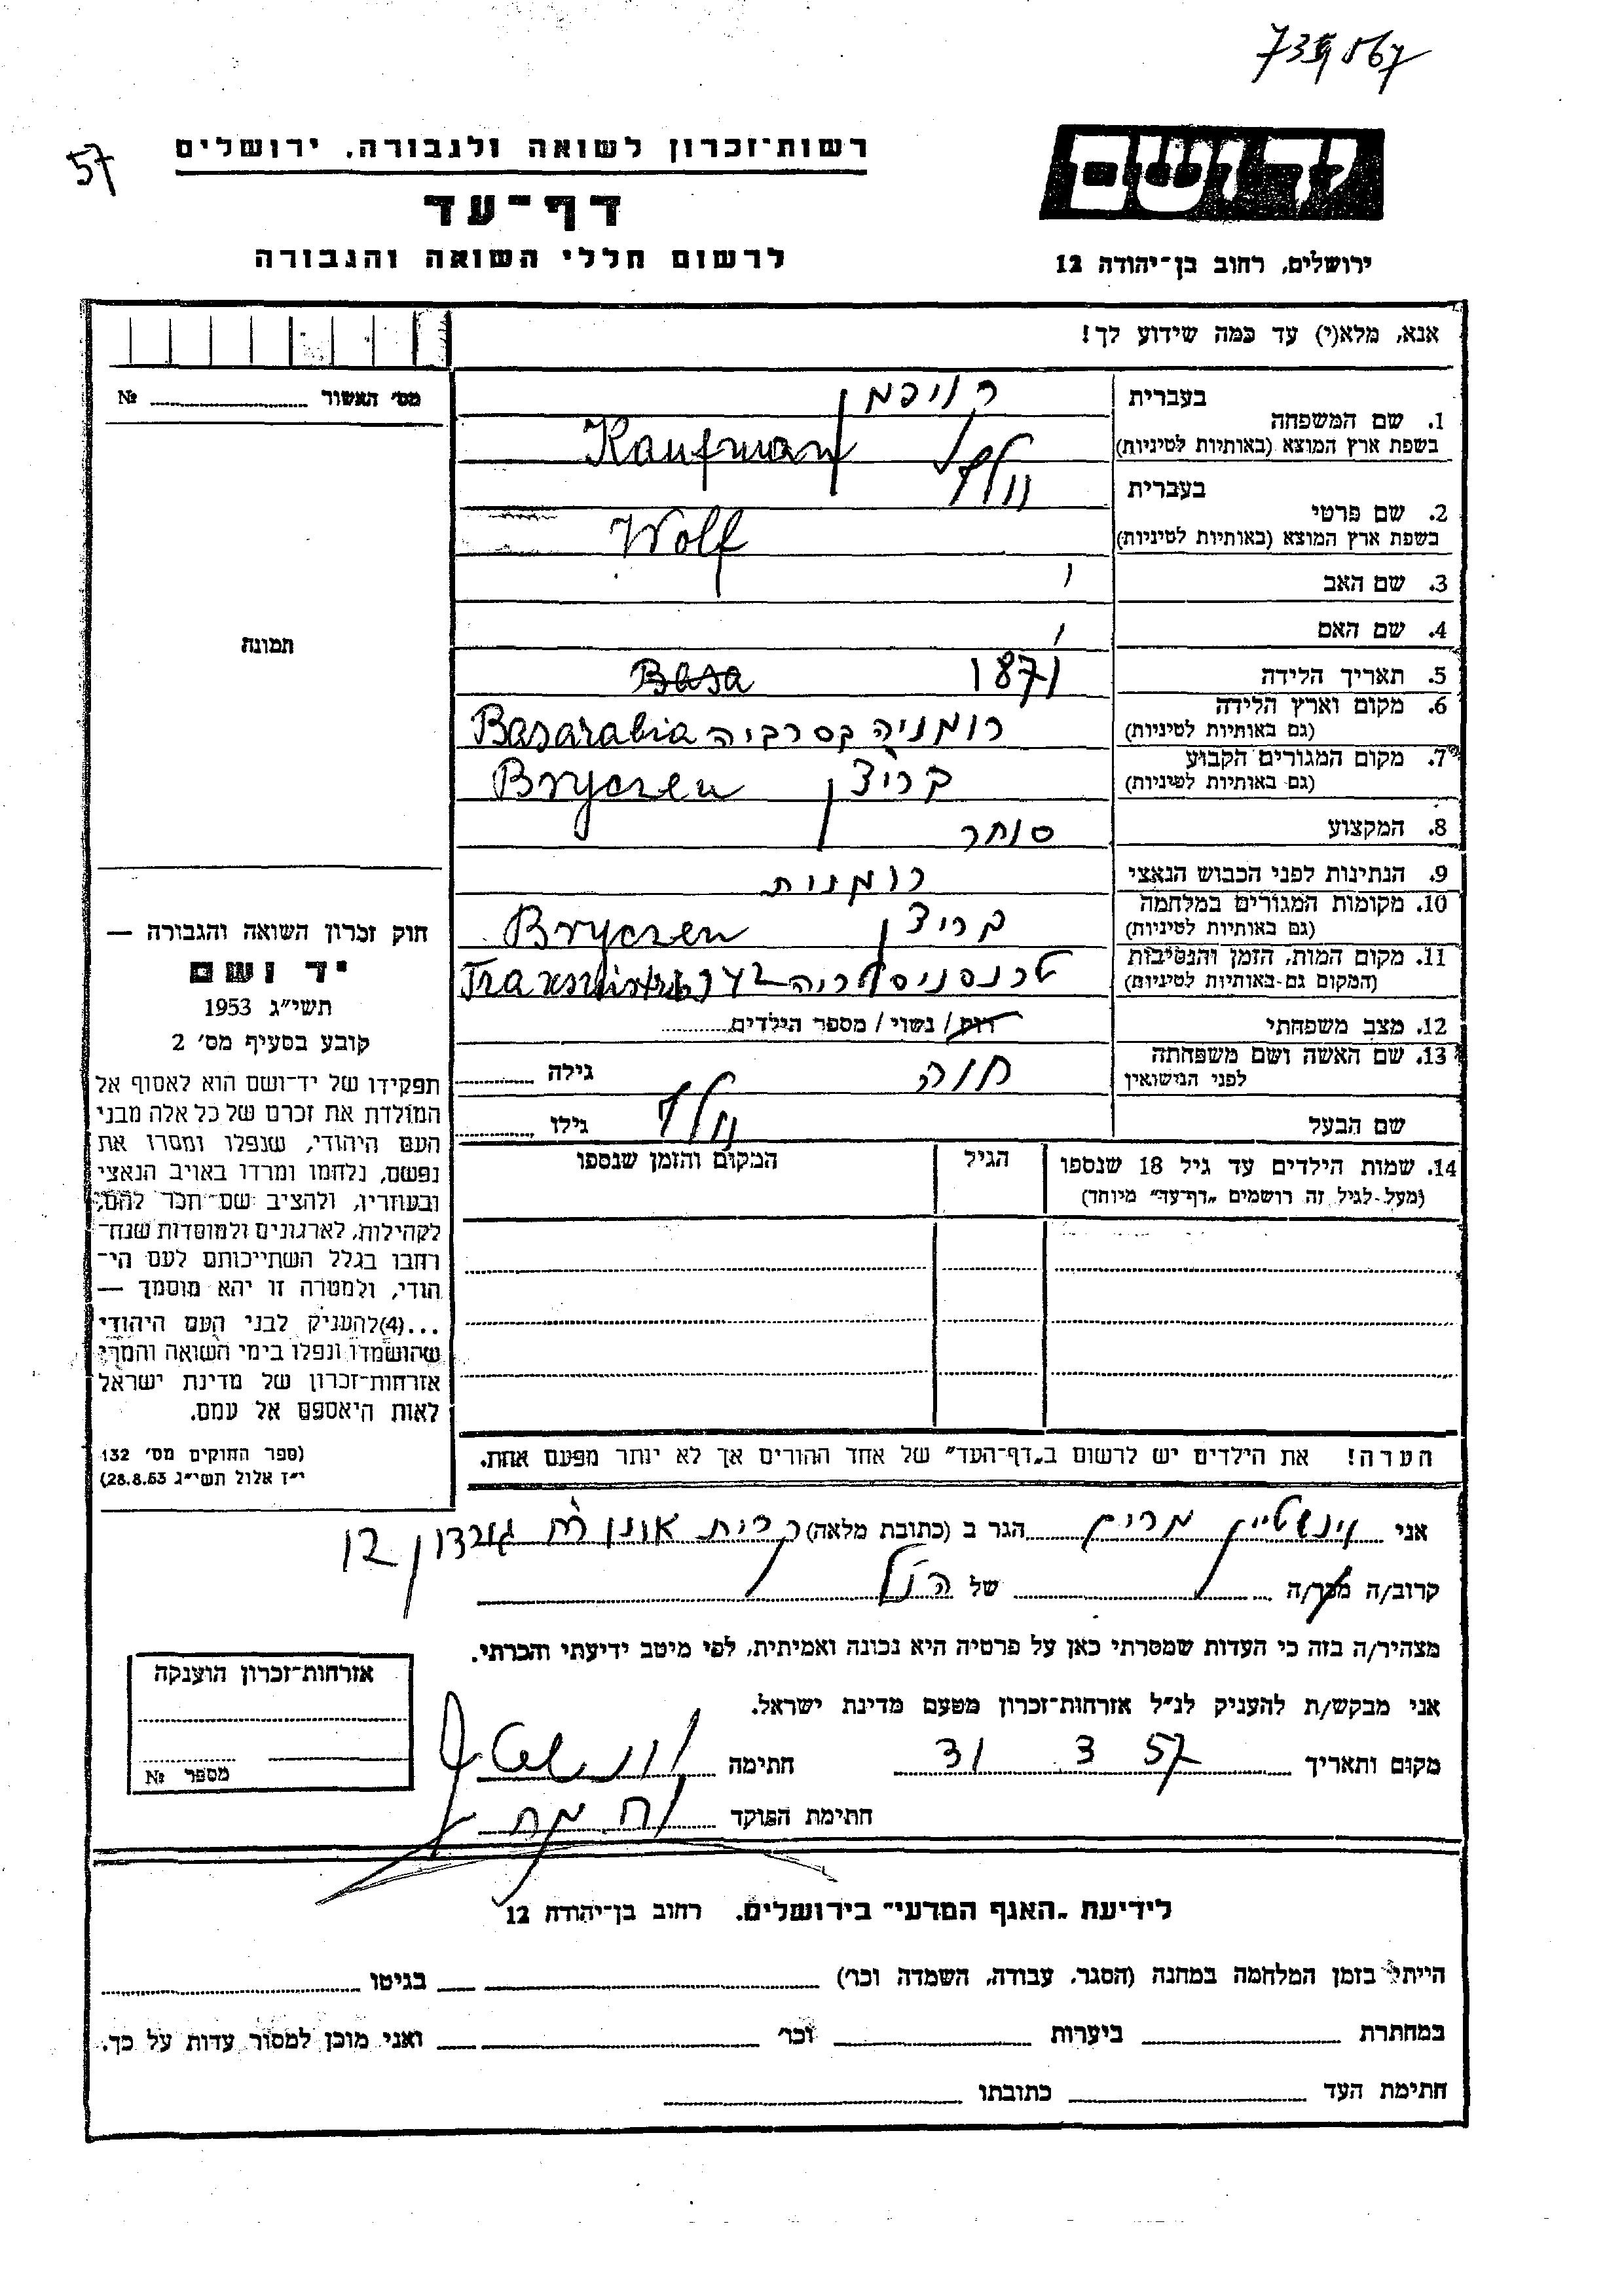 57
רשות־זכרון לשואה ולגבורה, ירושלים
דף־עד
לרשום חללי השואה והגבורה
יד ושם
ירושלים, רחוב בן־יהודה 12
אנא, מלא(י) עד כמה שידוע לך!
מס׳ האשור № 
בעברית
1. שם המשפחה קויפמן
בשפת ארץ המוצא (באותיות לטיניות) Kaufman
בעברית וולף
2. שם פרטי
בשפת ארץ המוצא (באותיות לטיניות) Wolf
3. שם האב
4. שם האם
5. תאריך הלידה 1871 Basa
6. מקום וארץ הלידה רומניה בסרביה Basarabia
(גם באותיות לטיניות)
7. מקום המגורים הקבוע בריצ׳ן Bryczen
(גם באותיות לטיניות)
8. המקצוע סוחר
9. הנתינות לפני הכבוש הנאצי רומנית
10. מקומות המגורים במלחמה בריצן Bryczen
(גם באותיות לטיניות)
11. מקום המות, הזמן והנסיבות טרנסניסטריה
(המקום גם־באותיות לטיניות)
12. מצב משפחתי רווק / נשוי / מספר הילדים
13. שם האשה ושם משפחתה חוה גילה
לפני הנישואין
שם הבעל וולף גילו
14. שמות הילדים עד גיל 18 שנספו הגיל המקום והזמן שנספו
(מעל־לגיל זה רושמים „דף־עד״ מיוחד)
הערה! את הילדים יש לרשום ב„דף־העד״ של אחד ההורים אך לא יותר מפעם אחת.
תמונה
חוק זכרון השואה והגבורה —
יד ושם
תשי״ג 1953
קובע בסעיף מס׳ 2
תפקידו של יד־ושם הוא לאסוף אל
המולדת את זכרם של כל אלה מבני
העם היהודי, שנפלו ומסרו את
נפשם, נלחמו ומרדו באויב הנאצי
ובעוזריו, ולהציב שם־וזכר להם,
לקהילות, לארגונים ולמוסדות שנח־
רבו בגלל השתייכותם לעם הי־
הודי, ולמטרה זו יהא מוסמך —
...(4) להעניק לבני העם היהודי
שהושמדו ונפלו בימי השואה והמרי
אזרחות־זכרון של מדינת ישראל
לאות היאספם אל עמם.
(ספר החוקים מס׳ 132
י״ז אלול תשי״ג 28.8.53)
אני וינשטיין מרים הגר ב (כתובת מלאה) קרית אונו רח גורדון 12
קרוב/ה מכר/ה של הנ״ל
מצהיר/ה בזה כי העדות שמסרתי כאן על פרטיה היא נכונה ואמיתית, לפי מיטב ידיעתי והכרתי.
אני מבקש/ת להעניק לנ״ל אזרחות־זכרון מטעם מדינת ישראל.
מקום ותאריך 31 3 57 חתימה
חתימת הפוקד
אזרחות־זכרון הוענקה
מספר №
לידיעת „האגף המדעי״ בירושלים, רחוב בן־יהודה 12
הייתי בזמן המלחמה במחנה (הסגר, עבודה, השמדה וכו׳) בגיטו
במחתרת ביערות וכו׳ ואני מוכן למסור עדות על כך.
חתימת העד כתובתו